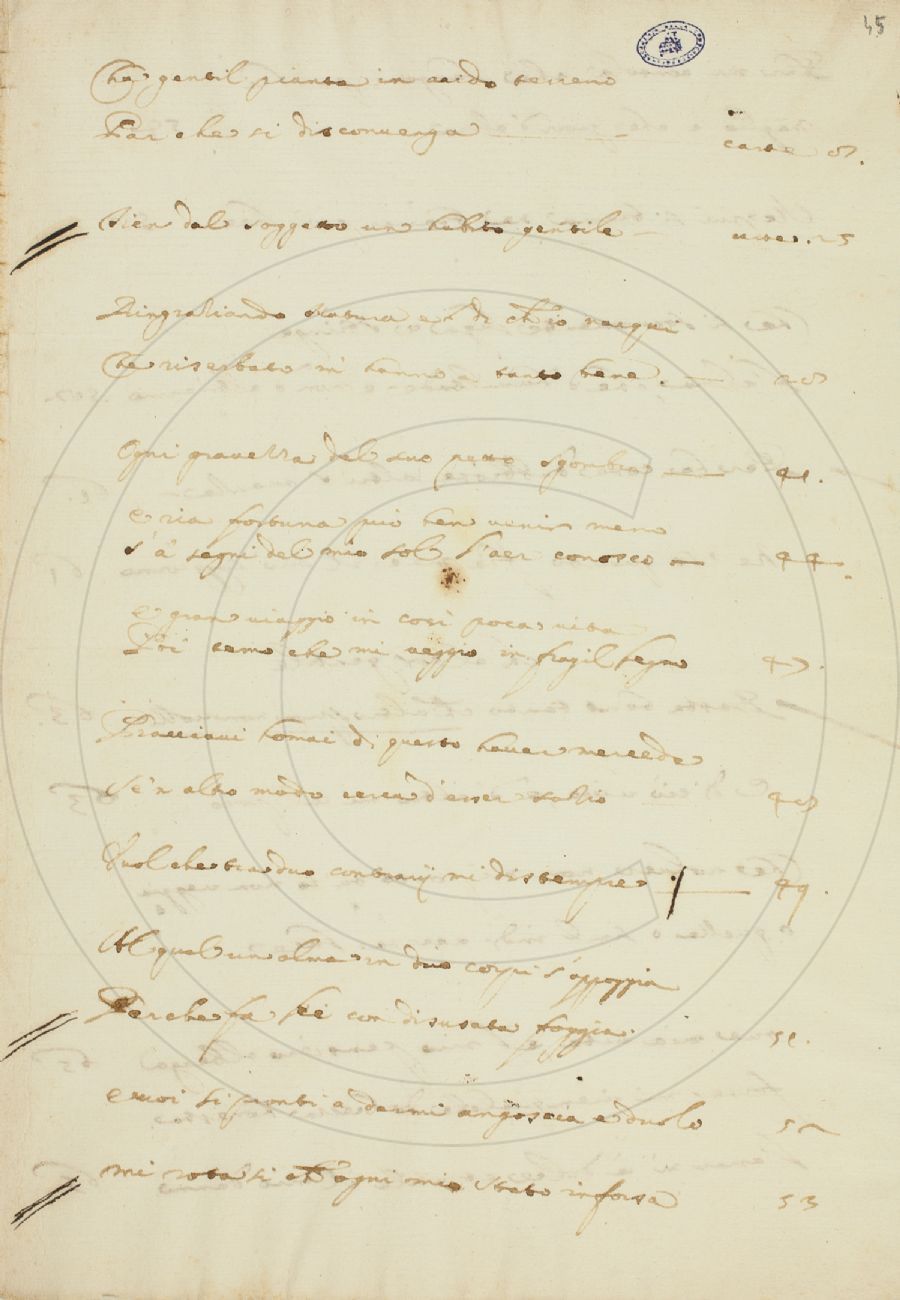 45
Che gentil pianta in arido terreno
Par che si disconvenga carte 8.
Vien dal soggetto un habito gentile 25
Ringratiando Natura e'l dì ch'io nacqui
Che riserbato mi hanno a tanto bene. 28
Ogni gravezza del suo petto sgombra 41.
e ria fortuna può ben venir meno
s'a segni del mio sol l'aer conosco 44.
e gran viaggio in così poca vita
Poi temo che mi veggio in fragil legno 47.
Piacciavi homai di questo haver mercede
Se'n altro modo cerca d'esser satio 48
Vuol che tra duo contrarij mi distempre 49.
Al qual un alma in duo corpi s'appoggia
Perche fa lei con disusata foggia. 51.
e voi sì pronti a darmi angoscia e duolo 52
mi rota sì ch'ogni mio stato inforsa 53